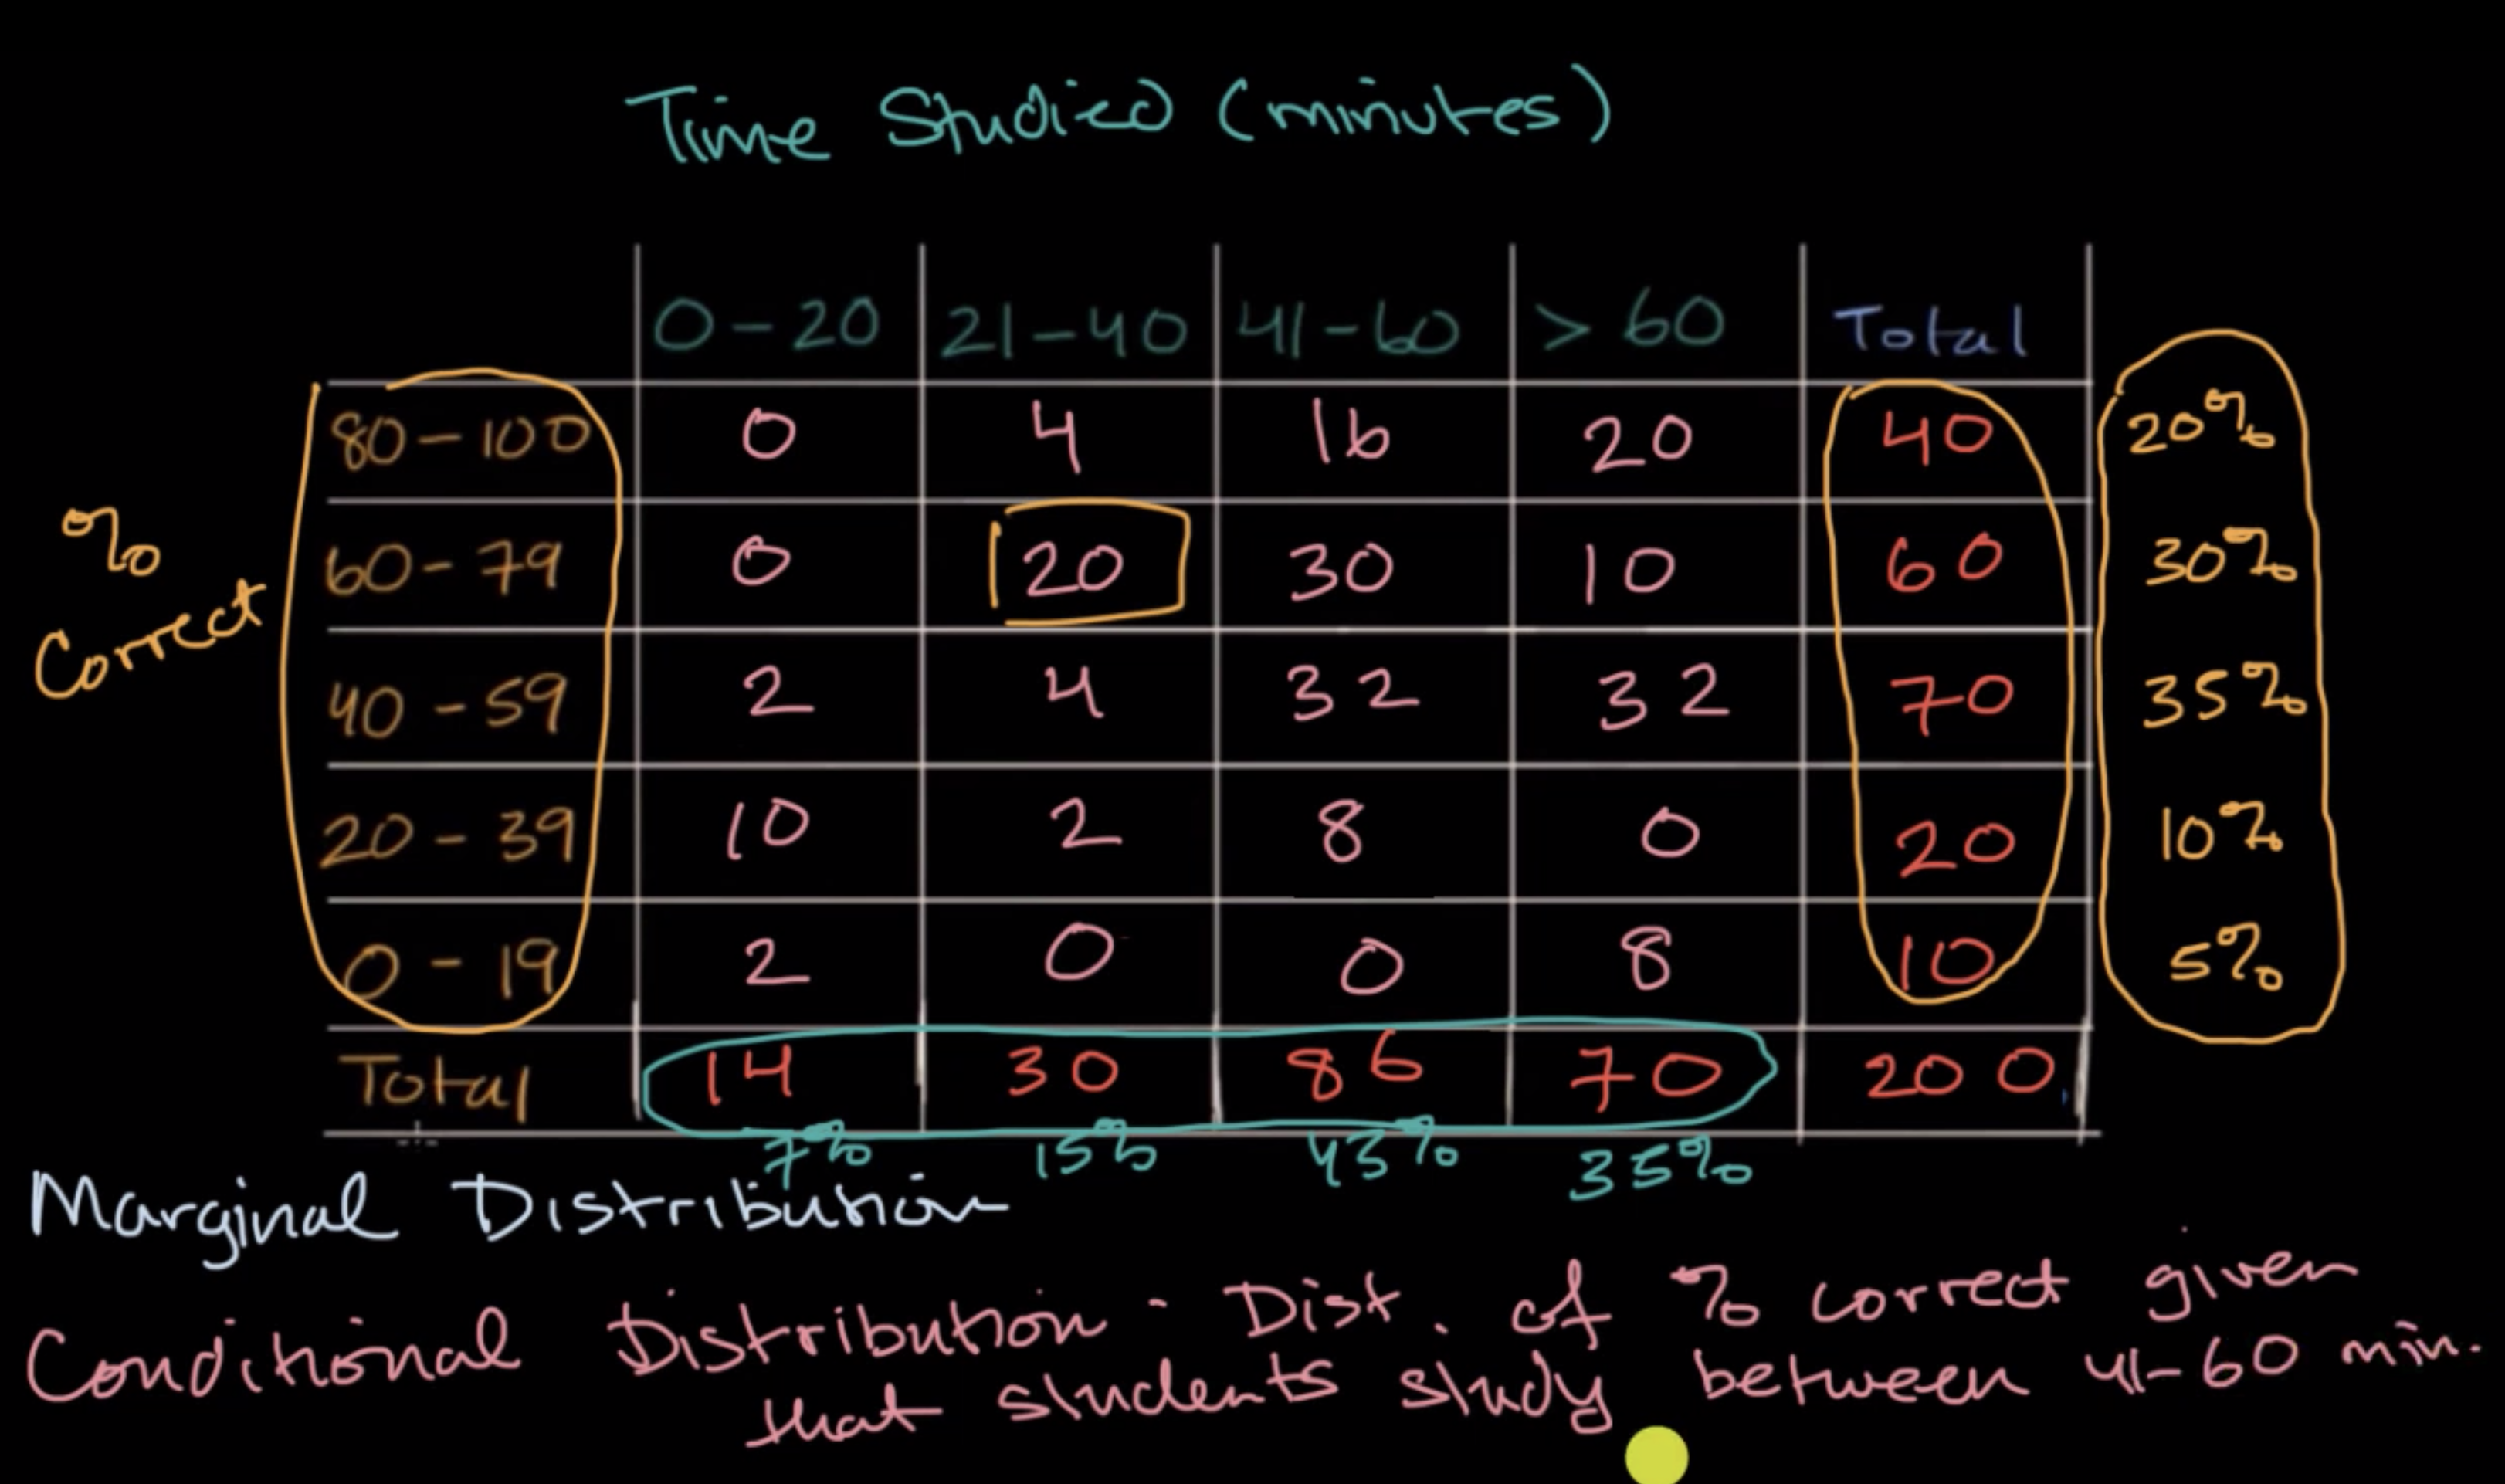 Time Studied (minutes)
0-20 21-40 41-60 > 60 Total
80-100 0 4 16 20 40 20%
60-79 0 20 30 10 60 30%
% Correct
40-59 2 4 32 32 70 35%
20-39 10 2 8 0 20 10%
0-19 2 0 0 8 10 5%
Total 14 30 86 70 200
7% 15% 43% 35%
Marginal Distribution
Conditional Distribution - Dist. of % correct given
that students study between 41-60 min.